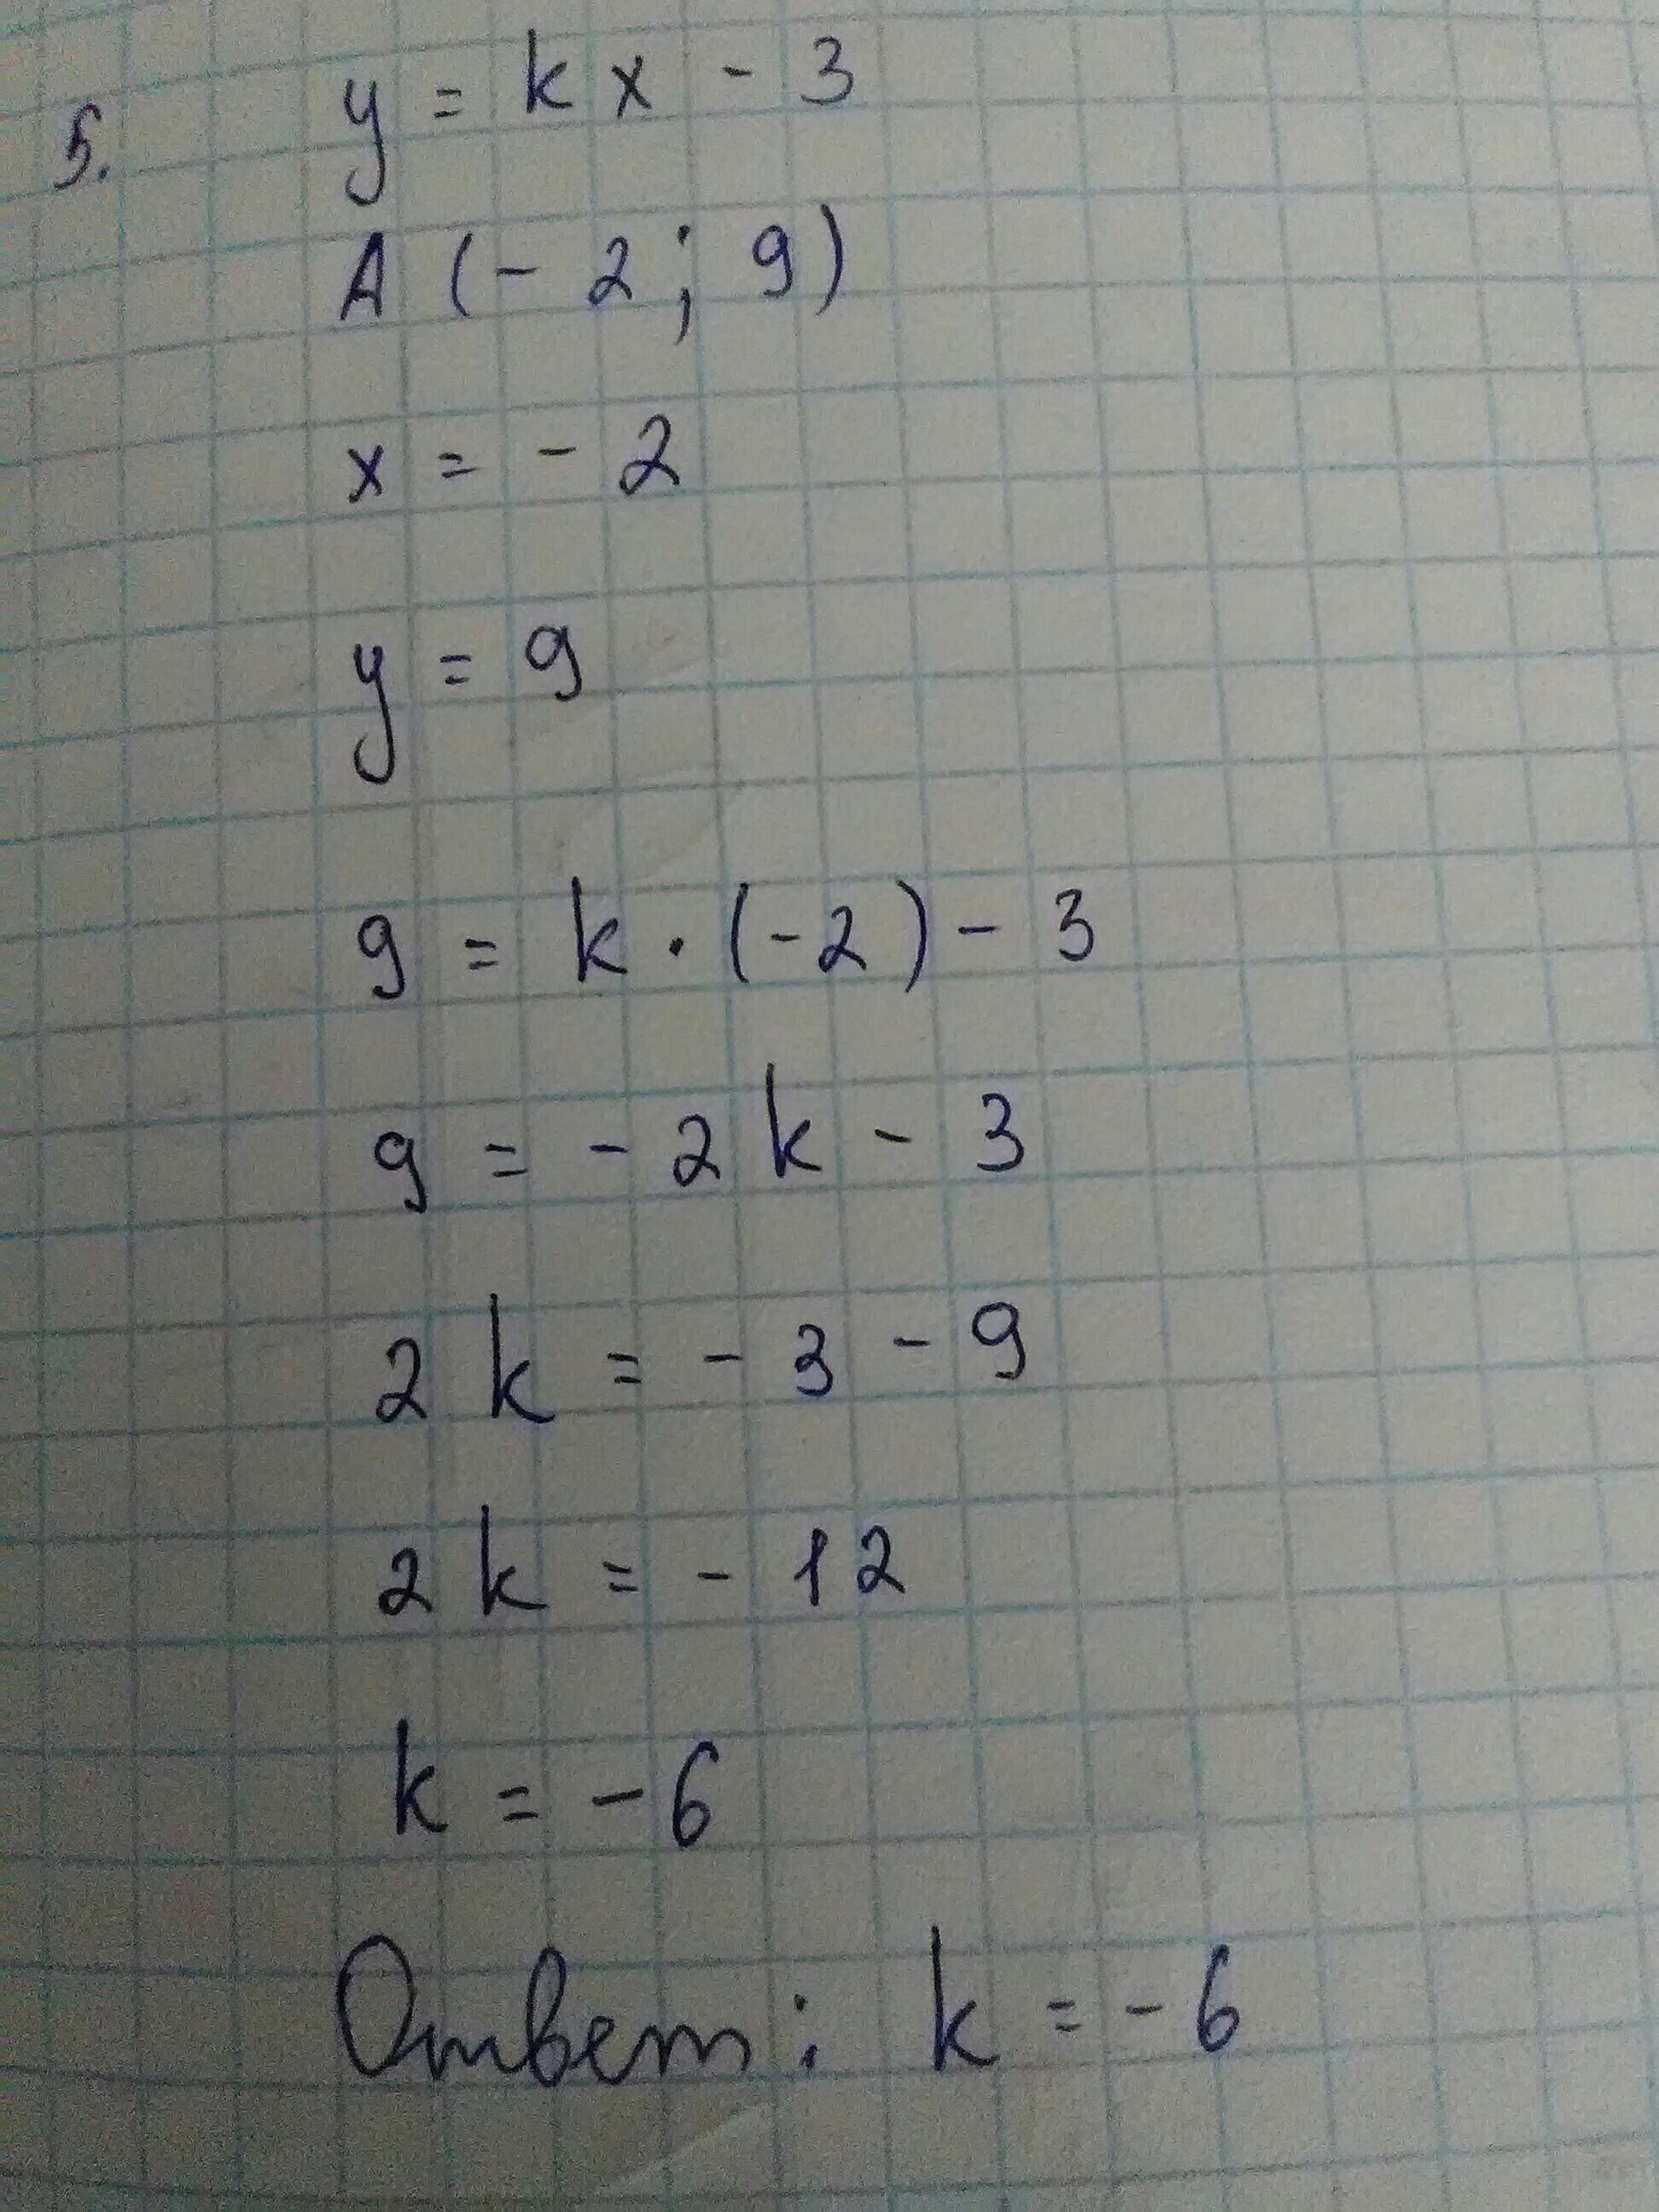 5. y = kx - 3
A (- 2; 9)
x = - 2
y = 9
9 = k · (-2) - 3
9 = - 2k - 3
2k = - 3 - 9
2k = - 12
k = - 6
Ответ: k = - 6